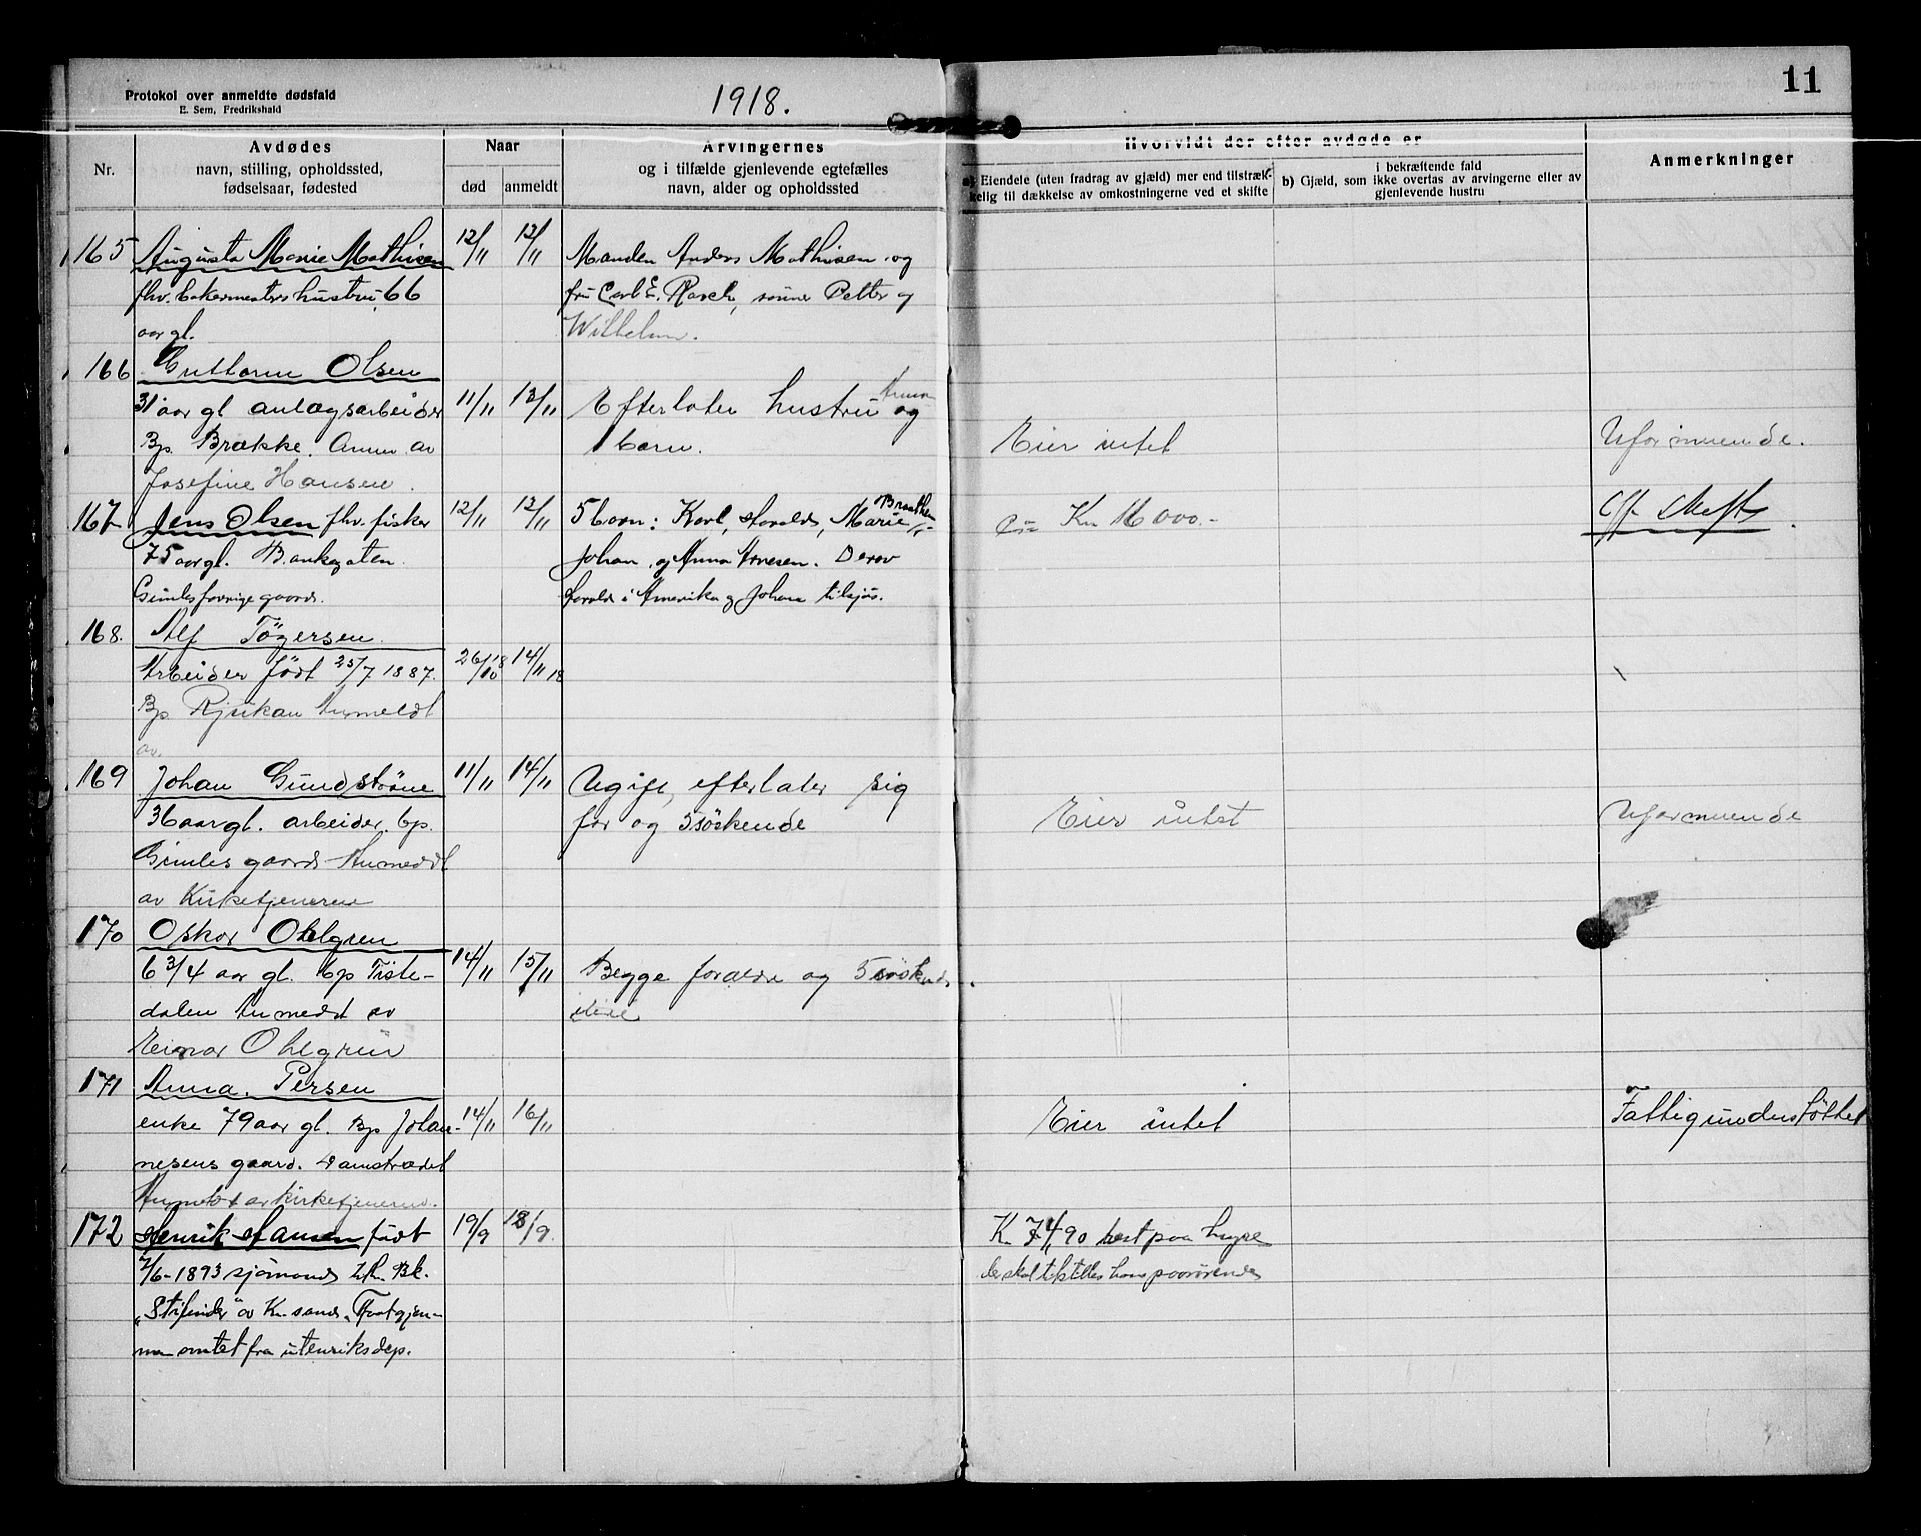 11
Protokol over anmeldte dødsfald
E. Sem, Fredrikshald
1918.
Nr.
Avdødes
navn, stilling, opholdssted,
fødselsaar, fødested
Naar
død
anmeldt
Arvingernes
og i tilfælde gjenlevende egtefælles
navn, alder og opholdssted
Hvorvidt der efter avdøde er
a) Eiendele (uten fradrag av gjæld) mer end tilstræk-
kelig til dækkelse av omkostningerne ved et skifte
i bekræftende fald
b) Gjæld, som ikke overtas av arvingerne eller av
gjenlevende hustru
Anmerkninger
165 Augusta Marie Mathisen 12/11 12/11 Manden Anders Mathisen og
fhv. bakermesters hustru, 66 fru Carl E. Rasch, sønner Petter og
aar gl. Wilhelm.
166 Guttorm Olsen
31 aar gl anlægsarbeider 11/11 12/11 Efterlater hustru Anna og
Bp. Brække. Anm. av 1 barn. Eier intet Uformuende.
Josefine Hansen.
167 Jens Olsen fhv. fisker 12/11 12/11 5 barn: Karl, Harald, Marie Braathen Kr 16000.-
75 aar gl. Bankegaten. Johan, og Anna Arnesen. Derav
Gimles forrige gaard. Harald i Amerika og Johan tilsjøs.
168. Alf Tögersen.
Arbeider født 25/7 1887. 26/10 18 14/11 18
Bp Rjukan Anmeldt
av.
169 Johan Gundstrøm 11/11 14/11 Ugift, efterlater sig
36 aar gl. arbeider. bp. far og 5 söskende Eier intet Uformuende
Gimles gaard Anmeldt
av Kirketjeneren
170 Oskar Ohlgren
6 3/4 aar gl. bp Tiste- 14/11 15/11 Begge foraldre og 5 söskende
dalen Anmeldt av
Einar Ohlgren
171 Anna Persen
enke 79 aar gl. Bp Johan- 14/11 16/11 Eier intet Fattigunderstöttet
nesens gaard. Damstrædet
Anmeldt av kirketjeneren.
172 Henrik Hansen født 19/9 18/9. Kr 74,90 rest paa hyre
7/6-1893 sjømand Bk. der skal tilstilles hans paarørende
"Stifinder" av Kr.sand. Gjen-
utenriksdep.